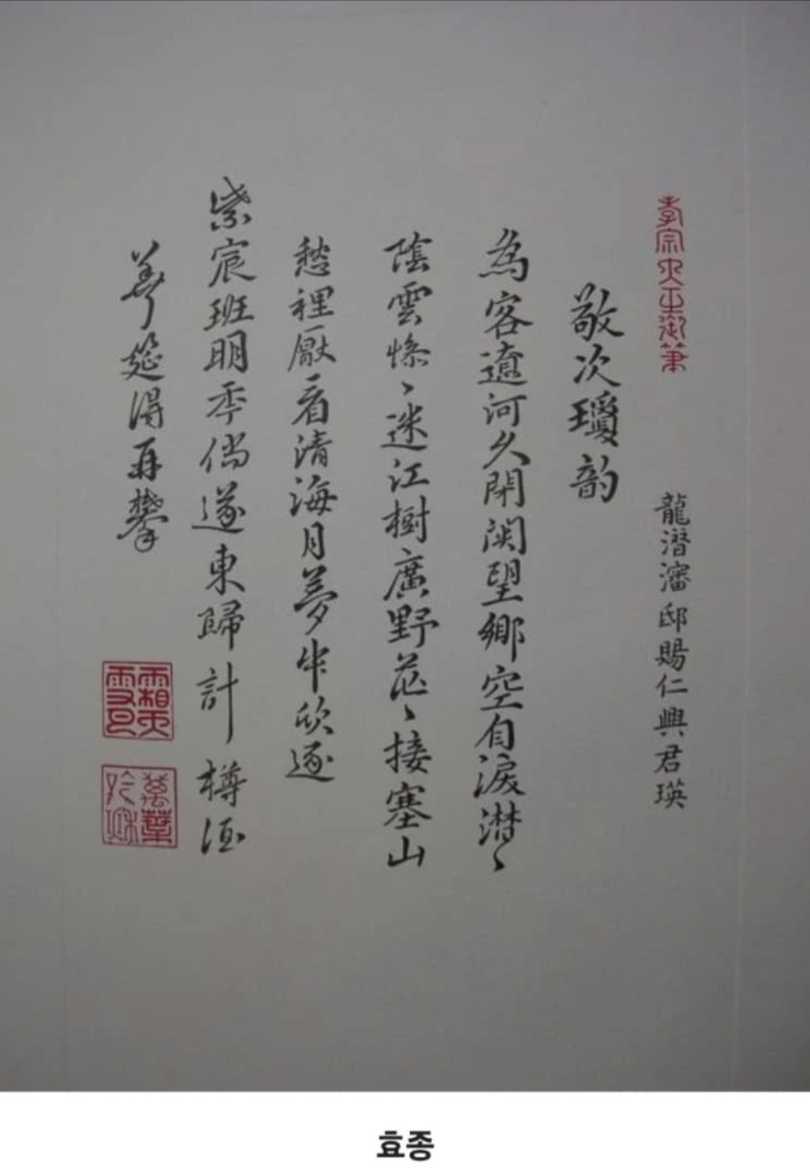 孝宗大王御筆
龍潛瀋邸賜仁興君瑛
敬次瓊韵
為客遼河久閉関望鄉空自淚潸〻
陰雲慘〻迷江樹廣野茫〻接塞山
愁裡厭看清海月夢中欣逐
紫宸班明年倘遂東歸計樽酒
華筵得再攀
효종